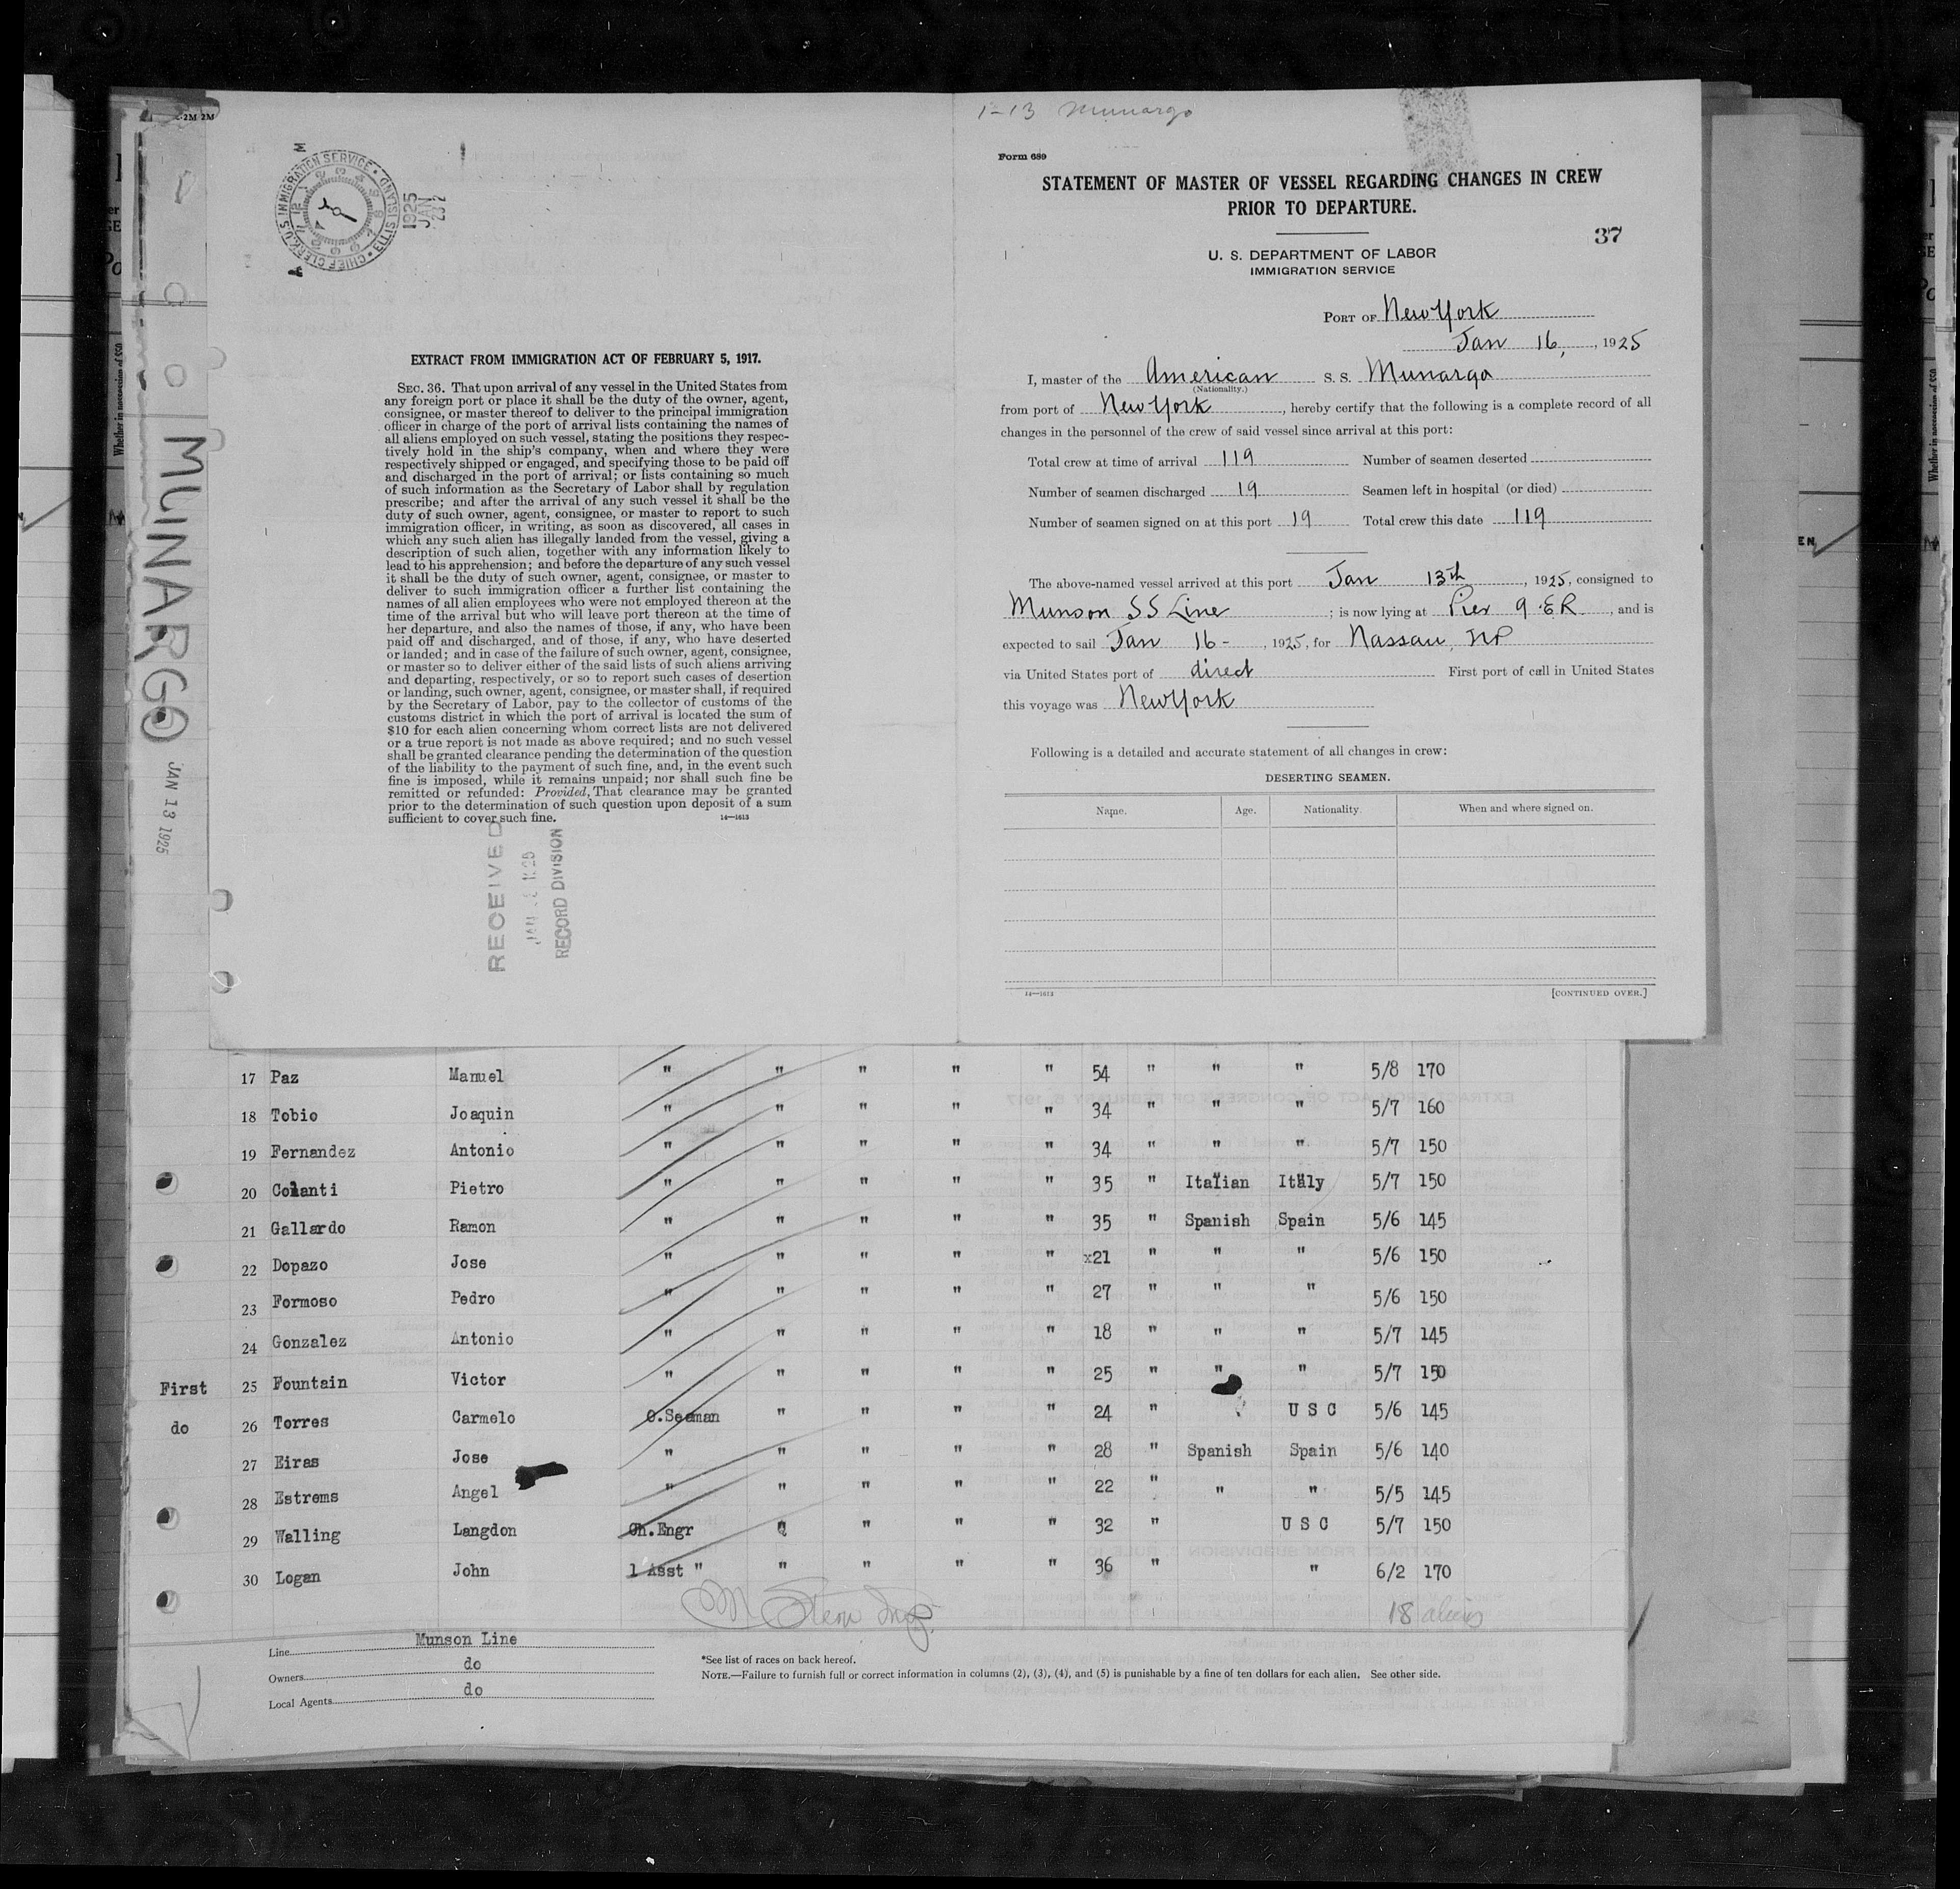 1-13 Munargo
CHIEF CLERK U.S. IMMIGRATION SERVICE • ELLIS ISLAND
1925
JAN
23
MUNARGO
JAN 13 1925
EXTRACT FROM IMMIGRATION ACT OF FEBRUARY 5, 1917.
SEC. 36. That upon arrival of any vessel in the United States from
any foreign port or place it shall be the duty of the owner, agent,
consignee, or master thereof to deliver to the principal immigration
officer in charge of the port of arrival lists containing the names of
all aliens employed on such vessel, stating the positions they respec-
tively hold in the ship's company, when and where they were
respectively shipped or engaged, and specifying those to be paid off
and discharged in the port of arrival; or lists containing so much
of such information as the Secretary of Labor shall by regulation
prescribe; and after the arrival of any such vessel it shall be the
duty of such owner, agent, consignee, or master to report to such
immigration officer, in writing, as soon as discovered, all cases in
which any such alien has illegally landed from the vessel, giving a
description of such alien, together with any information likely to
lead to his apprehension; and before the departure of any such vessel
it shall be the duty of such owner, agent, consignee, or master to
deliver to such immigration officer a further list containing the
names of all alien employees who were not employed thereon at the
time of the arrival but who will leave port thereon at the time of
her departure, and also the names of those, if any, who have been
paid off and discharged, and of those, if any, who have deserted
or landed; and in case of the failure of such owner, agent, consignee,
or master so to deliver either of the said lists of such aliens arriving
and departing, respectively, or so to report such cases of desertion
or landing, such owner, agent, consignee, or master shall, if required
by the Secretary of Labor, pay to the collector of customs of the
customs district in which the port of arrival is located the sum of
$10 for each alien concerning whom correct lists are not delivered
or a true report is not made as above required; and no such vessel
shall be granted clearance pending the determination of the question
of the liability to the payment of such fine, and, in the event such
fine is imposed, while it remains unpaid; nor shall such fine be
remitted or refunded: Provided, That clearance may be granted
prior to the determination of such question upon deposit of a sum
sufficient to cover such fine. 14—1613
RECEIVED
RECORD DIVISION
Form 689
STATEMENT OF MASTER OF VESSEL REGARDING CHANGES IN CREW
PRIOR TO DEPARTURE.
37
U. S. DEPARTMENT OF LABOR
IMMIGRATION SERVICE
PORT OF New York
Jan 16, 1925
I, master of the American S. S. Munargo
(Nationality.)
from port of New York, hereby certify that the following is a complete record of all
changes in the personnel of the crew of said vessel since arrival at this port:
Total crew at time of arrival 119 Number of seamen deserted
Number of seamen discharged 19 Seamen left in hospital (or died)
Number of seamen signed on at this port 19 Total crew this date 119
The above-named vessel arrived at this port Jan 13th, 1925, consigned to
Munson SS Line; is now lying at Pier 9 ER, and is
expected to sail Jan 16-, 1925, for Nassau, NP
via United States port of direct First port of call in United States
this voyage was New York
Following is a detailed and accurate statement of all changes in crew:
DESERTING SEAMEN.
Name. Age. Nationality. When and where signed on.
14—1613 [CONTINUED OVER.]
17 Paz Manuel " " " " " 54 " " " 5/8 170
18 Tobio Joaquin " " " " " 34 " " " 5/7 160
19 Fernandez Antonio " " " " " 34 " " " 5/7 150
20 Colanti Pietro " " " " " 35 " Italian Italy 5/7 150
21 Gallardo Ramon " " " " " 35 " Spanish Spain 5/6 145
22 Dopazo Jose " " " " " x21 " " " 5/6 150
23 Formoso Pedro " " " " " 27 " " " 5/6 150
24 Gonzalez Antonio " " " " " 18 " " " 5/7 145
First 25 Fountain Victor " " " " " 25 " " " 5/7 150
do 26 Torres Carmelo O.Seaman " " " " 24 " U S C 5/6 145
27 Eiras Jose " " " " " 28 " Spanish Spain 5/6 140
28 Estrems Angel " " " " " 22 " " " 5/5 145
29 Walling Langdon Ch.Engr " " " 32 " U S C 5/7 150
30 Logan John 1 Asst " " " " " 36 " " 6/2 170
18 aliens
Line Munson Line
Owners do
Local Agents do
*See list of races on back hereof.
NOTE.—Failure to furnish full or correct information in columns (2), (3), (4), and (5) is punishable by a fine of ten dollars for each alien. See other side.